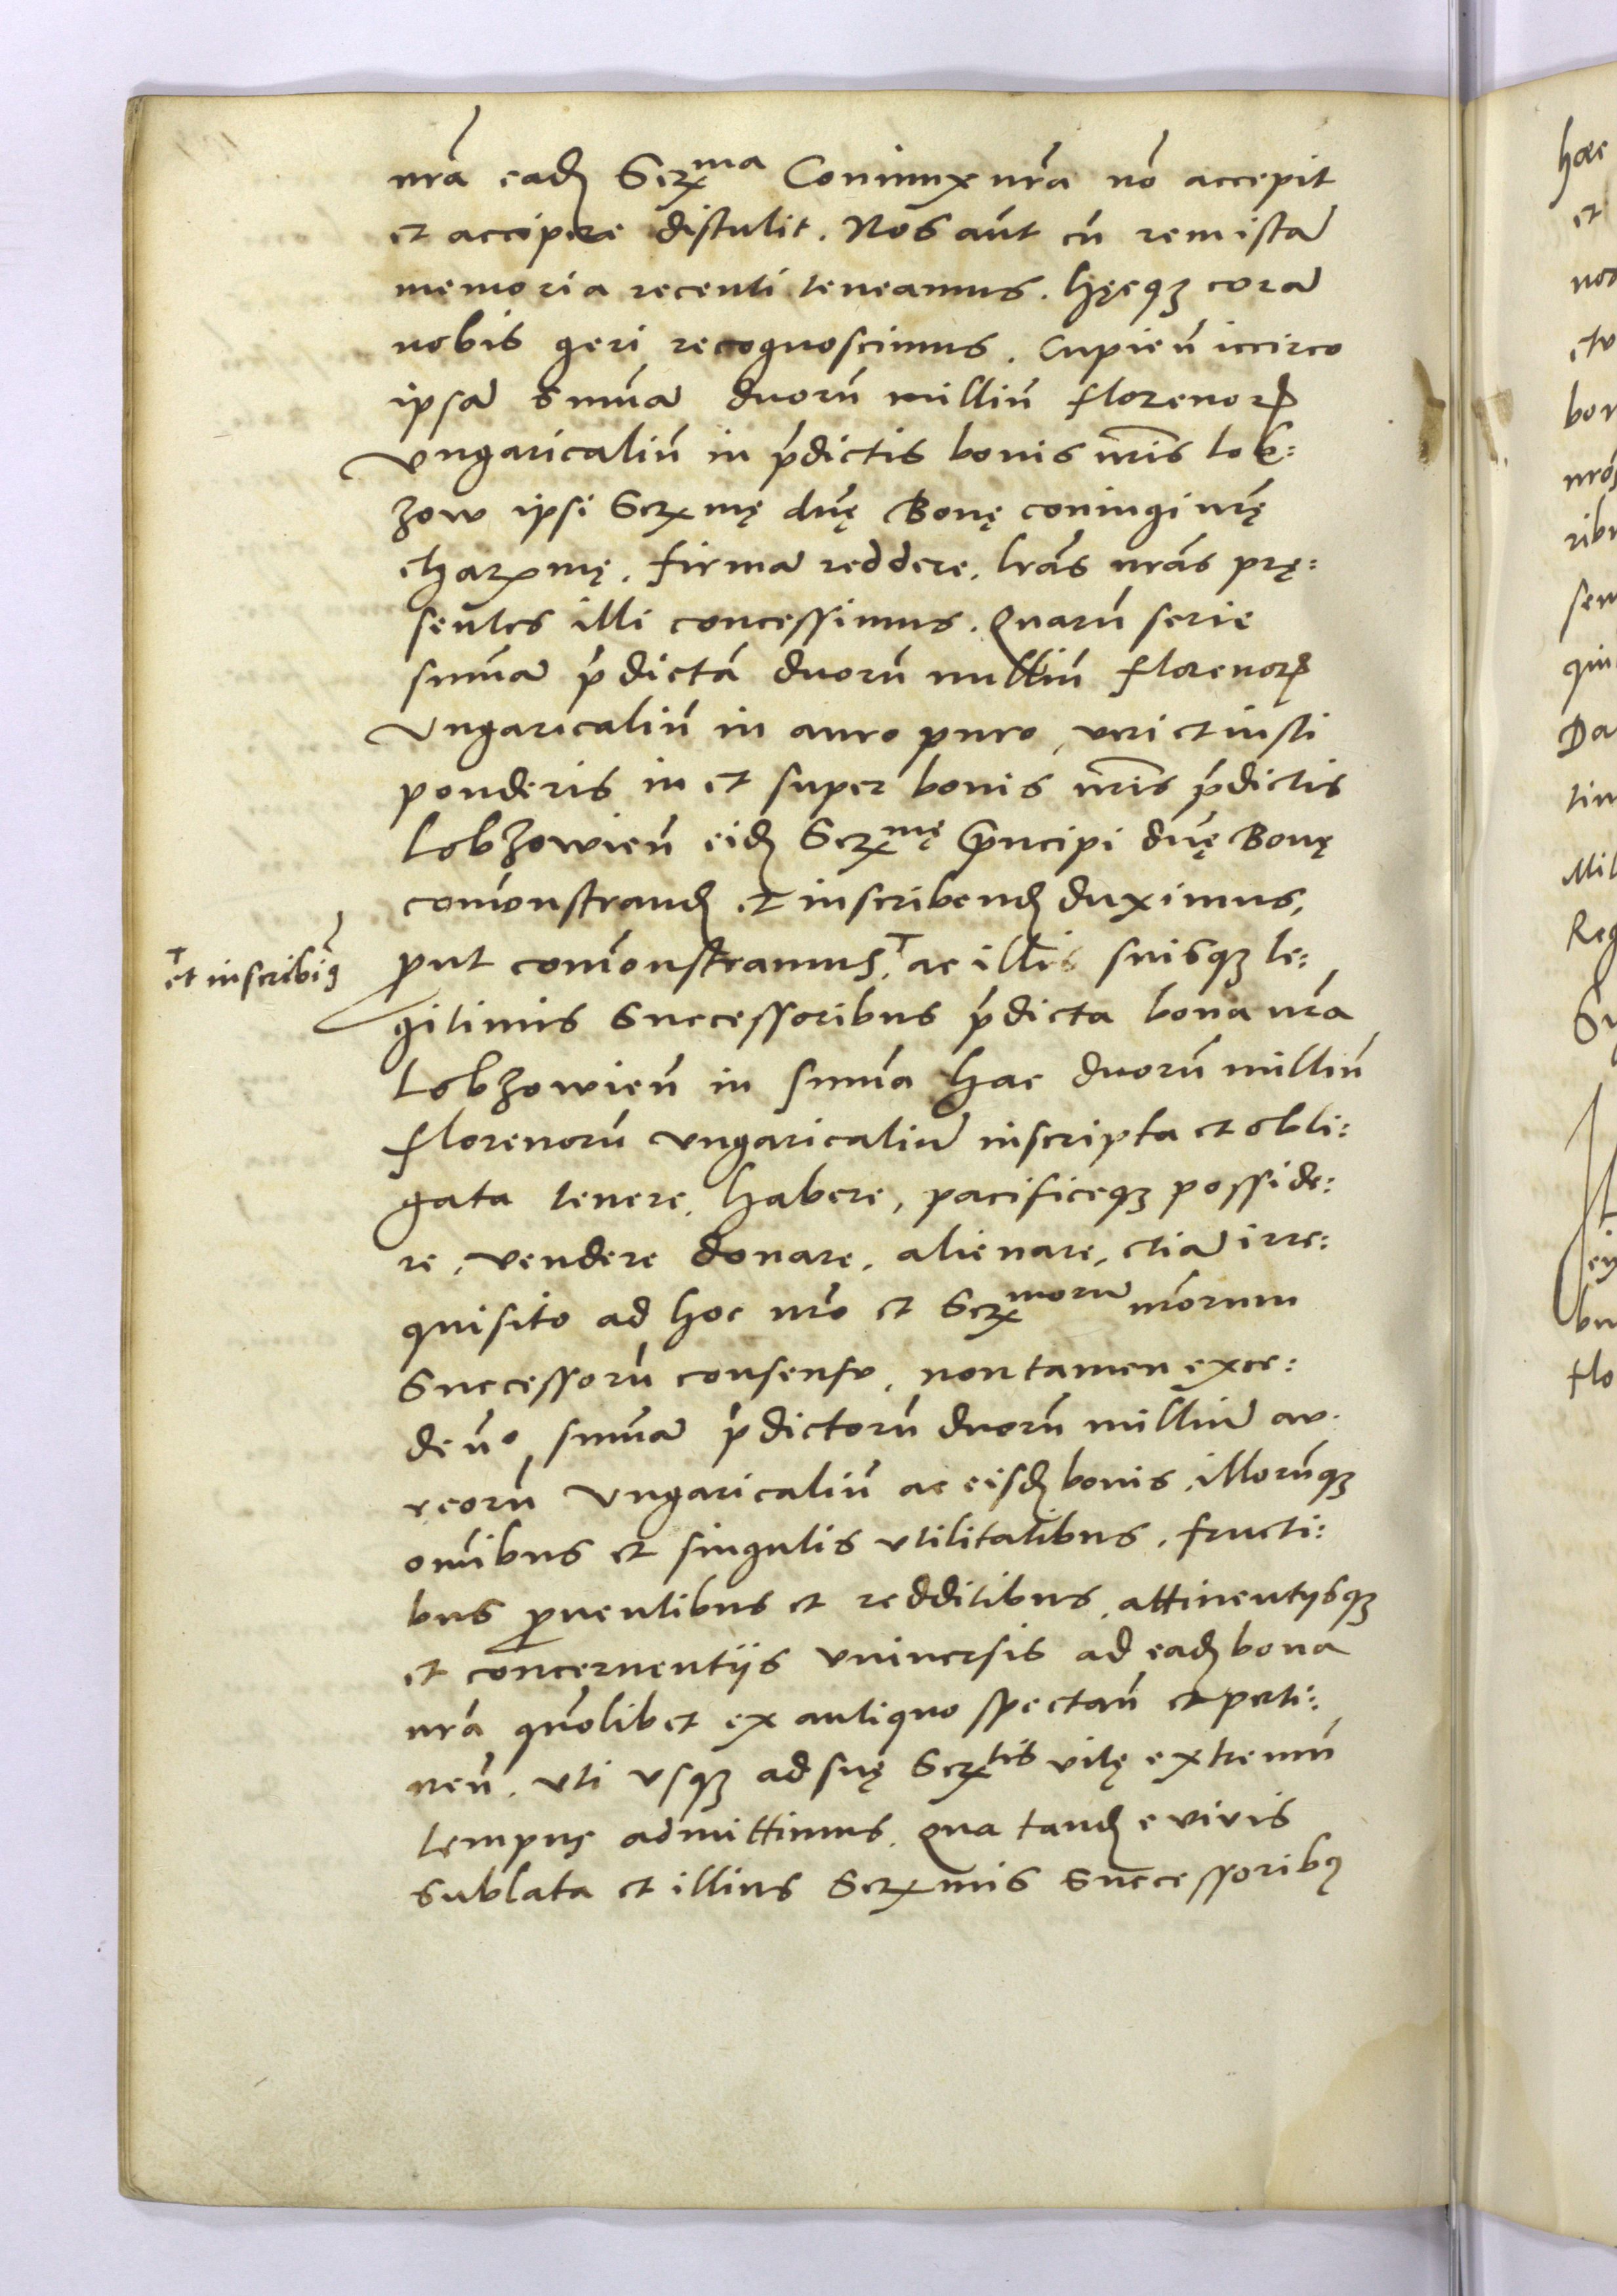 nrā eadē Serma Coniunx nrā nō accepit
et accipere distulit. Nos aūt cū rem istā
memoria recenti teneamus. hęcq; corā
nobis geri recognoscimus. Cupieñ iccirco
ipsā Summā duorū milliū florenorꝝ
vngaricaliū in p̄dictis bonis nr̄is Lob:
zow ipsi Sermę dn̄ę Bonę coniugi nr̄ę
charmę. firmā reddere. lrās nrās prę:
sentes illi concessimus. Quarū serie
summā p̄dictā duorū milliū florenorꝝ
vngaricaliū in auro puro, veri et iusti
ponderis in et super bonis nr̄is p̄dictis
Lobzowieñ eidē Sermę Principi dn̄ę Bonę
com̄onstrand̄ et inscribend̄ duximus,
ꝓut com̄onstramus,† ac illis suisq; le:
† et inscribim9
gitimis Successoribus p̄dicta bona nrā
Lobzowieñ in summa hac duorū milliū
florenorū vngaricaliū inscripta et obli:
gata tenere, habere, pacificeq; posside:
re, vendere donare, alienare, etiā irre:
quisito ad hoc nr̄o et Sermorū nr̄orum
Successorū consensu, non tamen exce:
deñ, summā p̄dictorū duorū milliū au:
reorū Vngaricaliū ac eisdē bonis, illorūq;
omībus et singulis vtilitatibus, fructi:
bus ꝓuentibus et redditibus, attinentijsq;
et concernentijs vniuersis ad eadē bona
nrā quōlibet ex antiquo spectañ et perti:
neñ. vti vsq; ad suę Sertis vitę extremū
tempus admittimus. Qua tandē e viuis
sublata et illius Sermis Successoribq